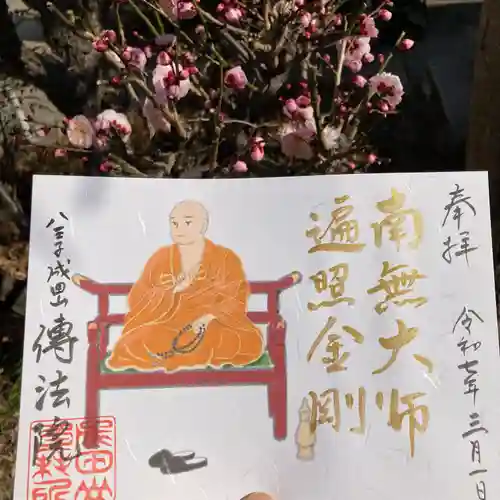 奉拝
令和七年三月一日
南無大師
遍照金剛
八王子成田山
傳法院